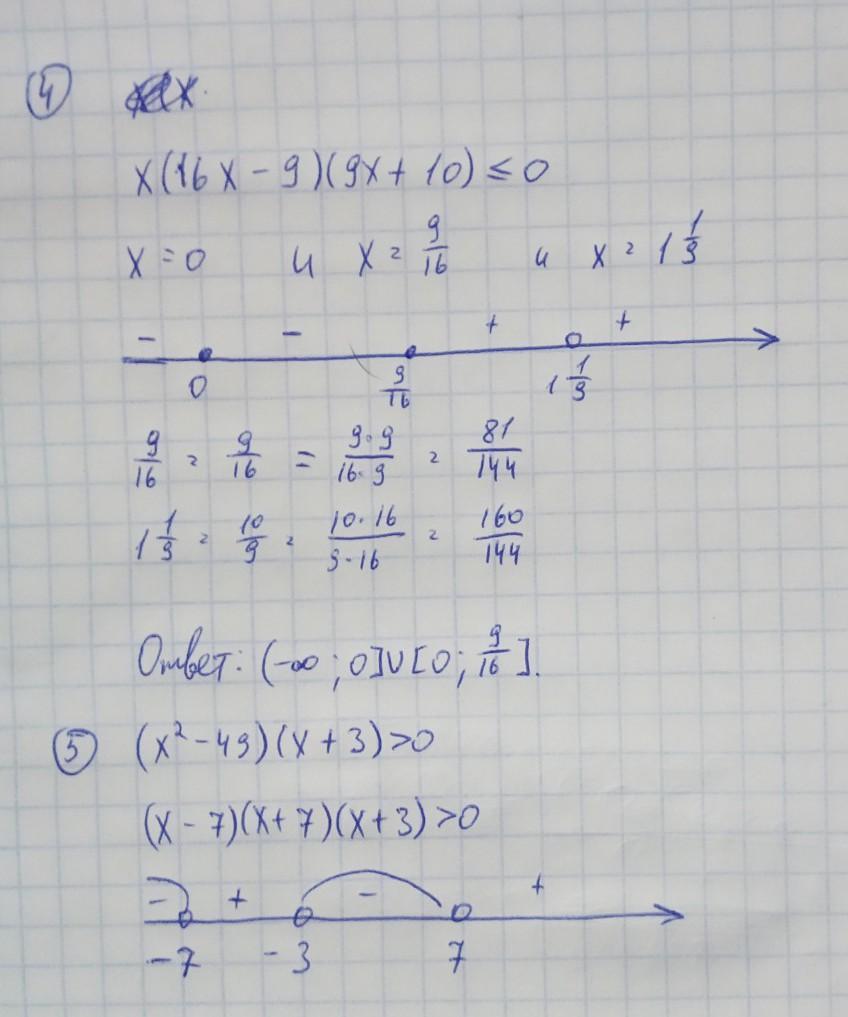 ④ x.
x(16x - 9)(9x + 10) ≤ 0
x = 0 и x = 9/16 и x = 1 1/9
- - + +
0 9/16 1 1/9
9/16 = 9/16 = 9·9/16·9 = 81/144
1 1/9 = 10/9 = 10·16/9·16 = 160/144
Ответ: (-∞; 0]∪[0; 9/16].
⑤ (x² - 49)(x + 3) > 0
(x - 7)(x + 7)(x + 3) > 0
- + - +
-7 -3 7